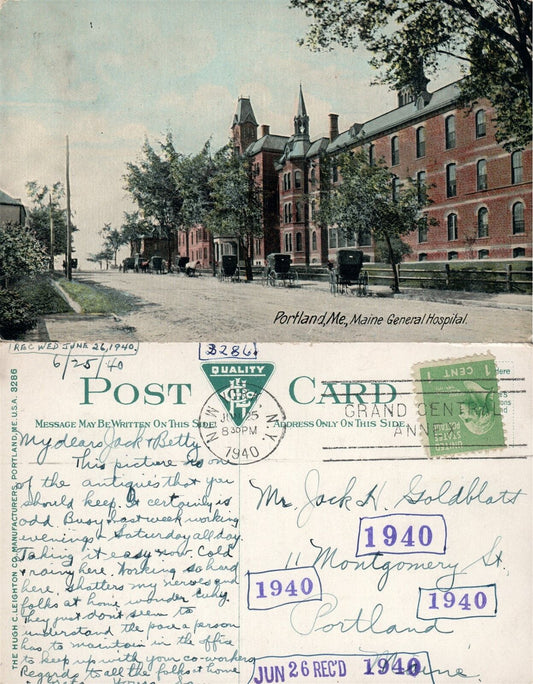 Portland, Me., Maine General Hospital.
REC WED JUNE 26, 1940.
6/25/40
3286
QUALITY
POST CARD
MESSAGE MAY BE WRITTEN ON THIS SIDE
ADDRESS ONLY ON THIS SIDE
NEW YORK, N.Y.
8 30 PM
1940
GRAND CENTRAL
ANNEX
1 CENT 1
UNITED STATES
POSTAGE
THE HUGH C. LEIGHTON CO. MANUFACTURERS, PORTLAND, ME. U.S.A. 3286
My dears Jack & Betty
This picture is one
of the antiques that you
should keep. It certainly is
odd. Busy last week working
evenings & Saturday all day.
Taking it easy now. Cold
& rainy here. Working so hard
here. Shatters my nerves and
folks at home wonder why.
They just don't seem to
understand the pace a person
has to maintain in the office
to keep up with your co-workers
Regards to all the folks at home
Mr. Jack H. Goldblatt
11 Montgomery St.
Portland
Maine.
1940
1940
1940
JUN 26 REC'D 1940